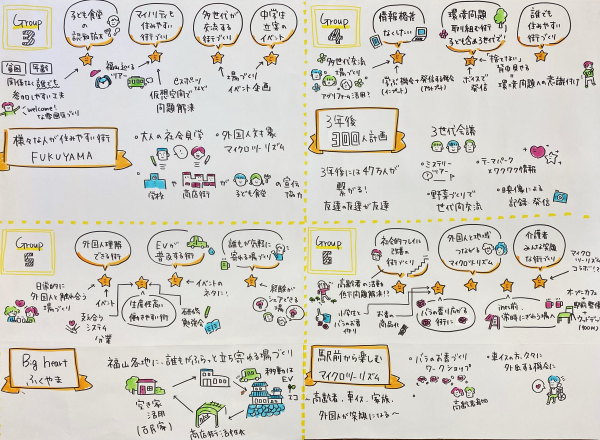 Group
3
子ども食堂の
認知拡大
マイノリティも
住みやすい
街づくり
多世代が
交流する
街づくり
中学生
立案の
イベント
貧困
年齢
関係なく誰でも
参加しやすい工夫
welcome!
な雰囲気づくり
福山巡る
ツアー
eスポーツ
など
仮想空間で
問題解決
場づくり
イベント企画
様々な人が住みやすい街
FUKUYAMA
・大人の社会見学
・外国人対象
マイクロツーリズム
学校
や
商店街
が
子ども食堂
の宣伝
協力
Group
4
情報格差
なくしたい
環境問題
取り組む街
子ども含め3世代で!
誰でも
住みやすい
街づくり
多世代交流
場づくり
アプリゲーム活用?
学ぶ機会+発信する機会
(インプット)
(アウトプット)
"捨てない"
背中見せる
ボイスで
発信
環境問題への意識付け
3年後
300人計画
3年後には47万人が
繋がる!
友達の友達が友達
3世代会議
・ミステリー
ツアー
・テーマパーク
×ワクワク情報
・野菜づくりで
世代間交流
・映像による
記録・発信
Group
5
外国人理解
できる街
EVが
普及する街
誰もが気軽に
寄れる場づくり
日常的に
外国人と触れ合う
場づくり
イベント
支え合う
システム
分業
生産性高い
働きやすい街
イベントの
ネタに!
勉強会
経験が
シェアできる
場
Big heart
ふくやま
福山各地に、誰もがふらっと立ち寄れる場づくり
空き家
活用
(古民家)
商店街活性化
移動は
EV
エコ
Group
社会的フレイル
改善の
街づくり
外国人と地域
つながる
マイクロツーリズム
介護者
みんな笑顔
な街づくり
マイクロ
ツーリズム
コラボ!?
高齢者の活動
低下問題解決!?
小学生と
バラのお香
作り
お香の
商品化
バラの香り広がる
街に
駅前、
常時にぎわう場へ
オープンカフェ
駅前整備
ウッドデッキ
(100m)
駅前から楽しむ
マイクロツーリズム
・バラのお香づくり
ワークショップ
・車イスの方、外に
外出する機会に
高齢者、車イス、家族、
外国人が笑顔になる〜